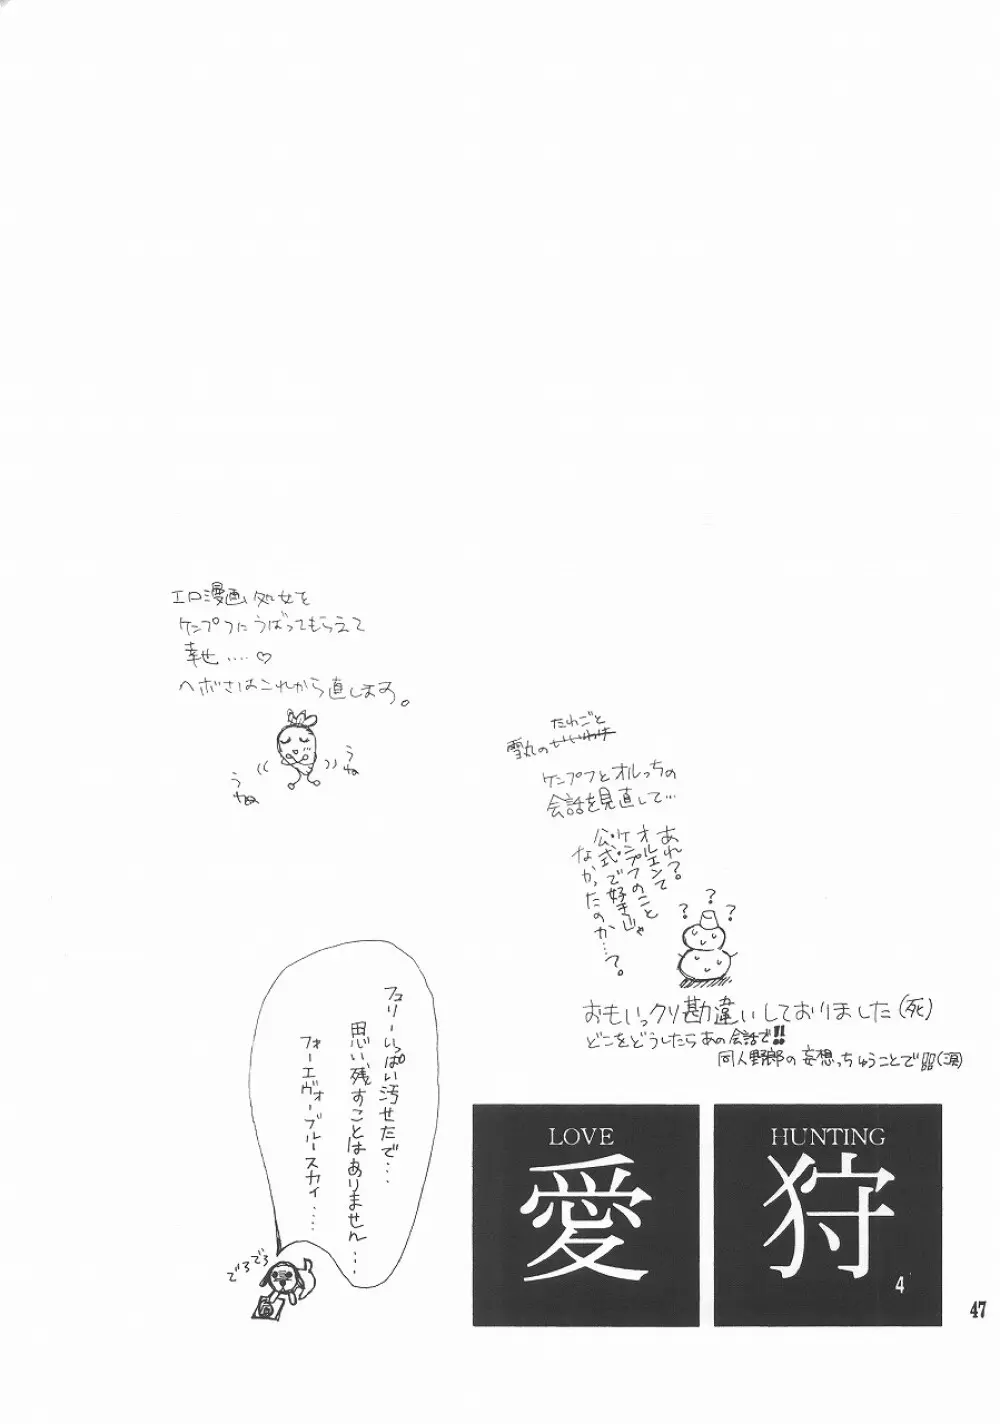 エロ漫画処女を
ケンプフにうばってもらえて
幸せ....♡
ヘボさはこれから直します。
うね
うねぬ
たわごと
雪丸の
ケンプフとオルっちの
会話を見直して...
あれ?
オルエンて
ケンプフのこと
公式で好きじゃ
なかったのか...?。
? ? ?
おもいっクリ勘違いしておりました(死)
どこをどうしたらあの会話で!!
同人野郎の妄想っちゅうことで(涙)
フェリーいっぱい汚せたで...
思い残すことはありません...
フォーエヴォーブルースカイ....
でろでろ
LOVE
愛
HUNTING
狩
4
47